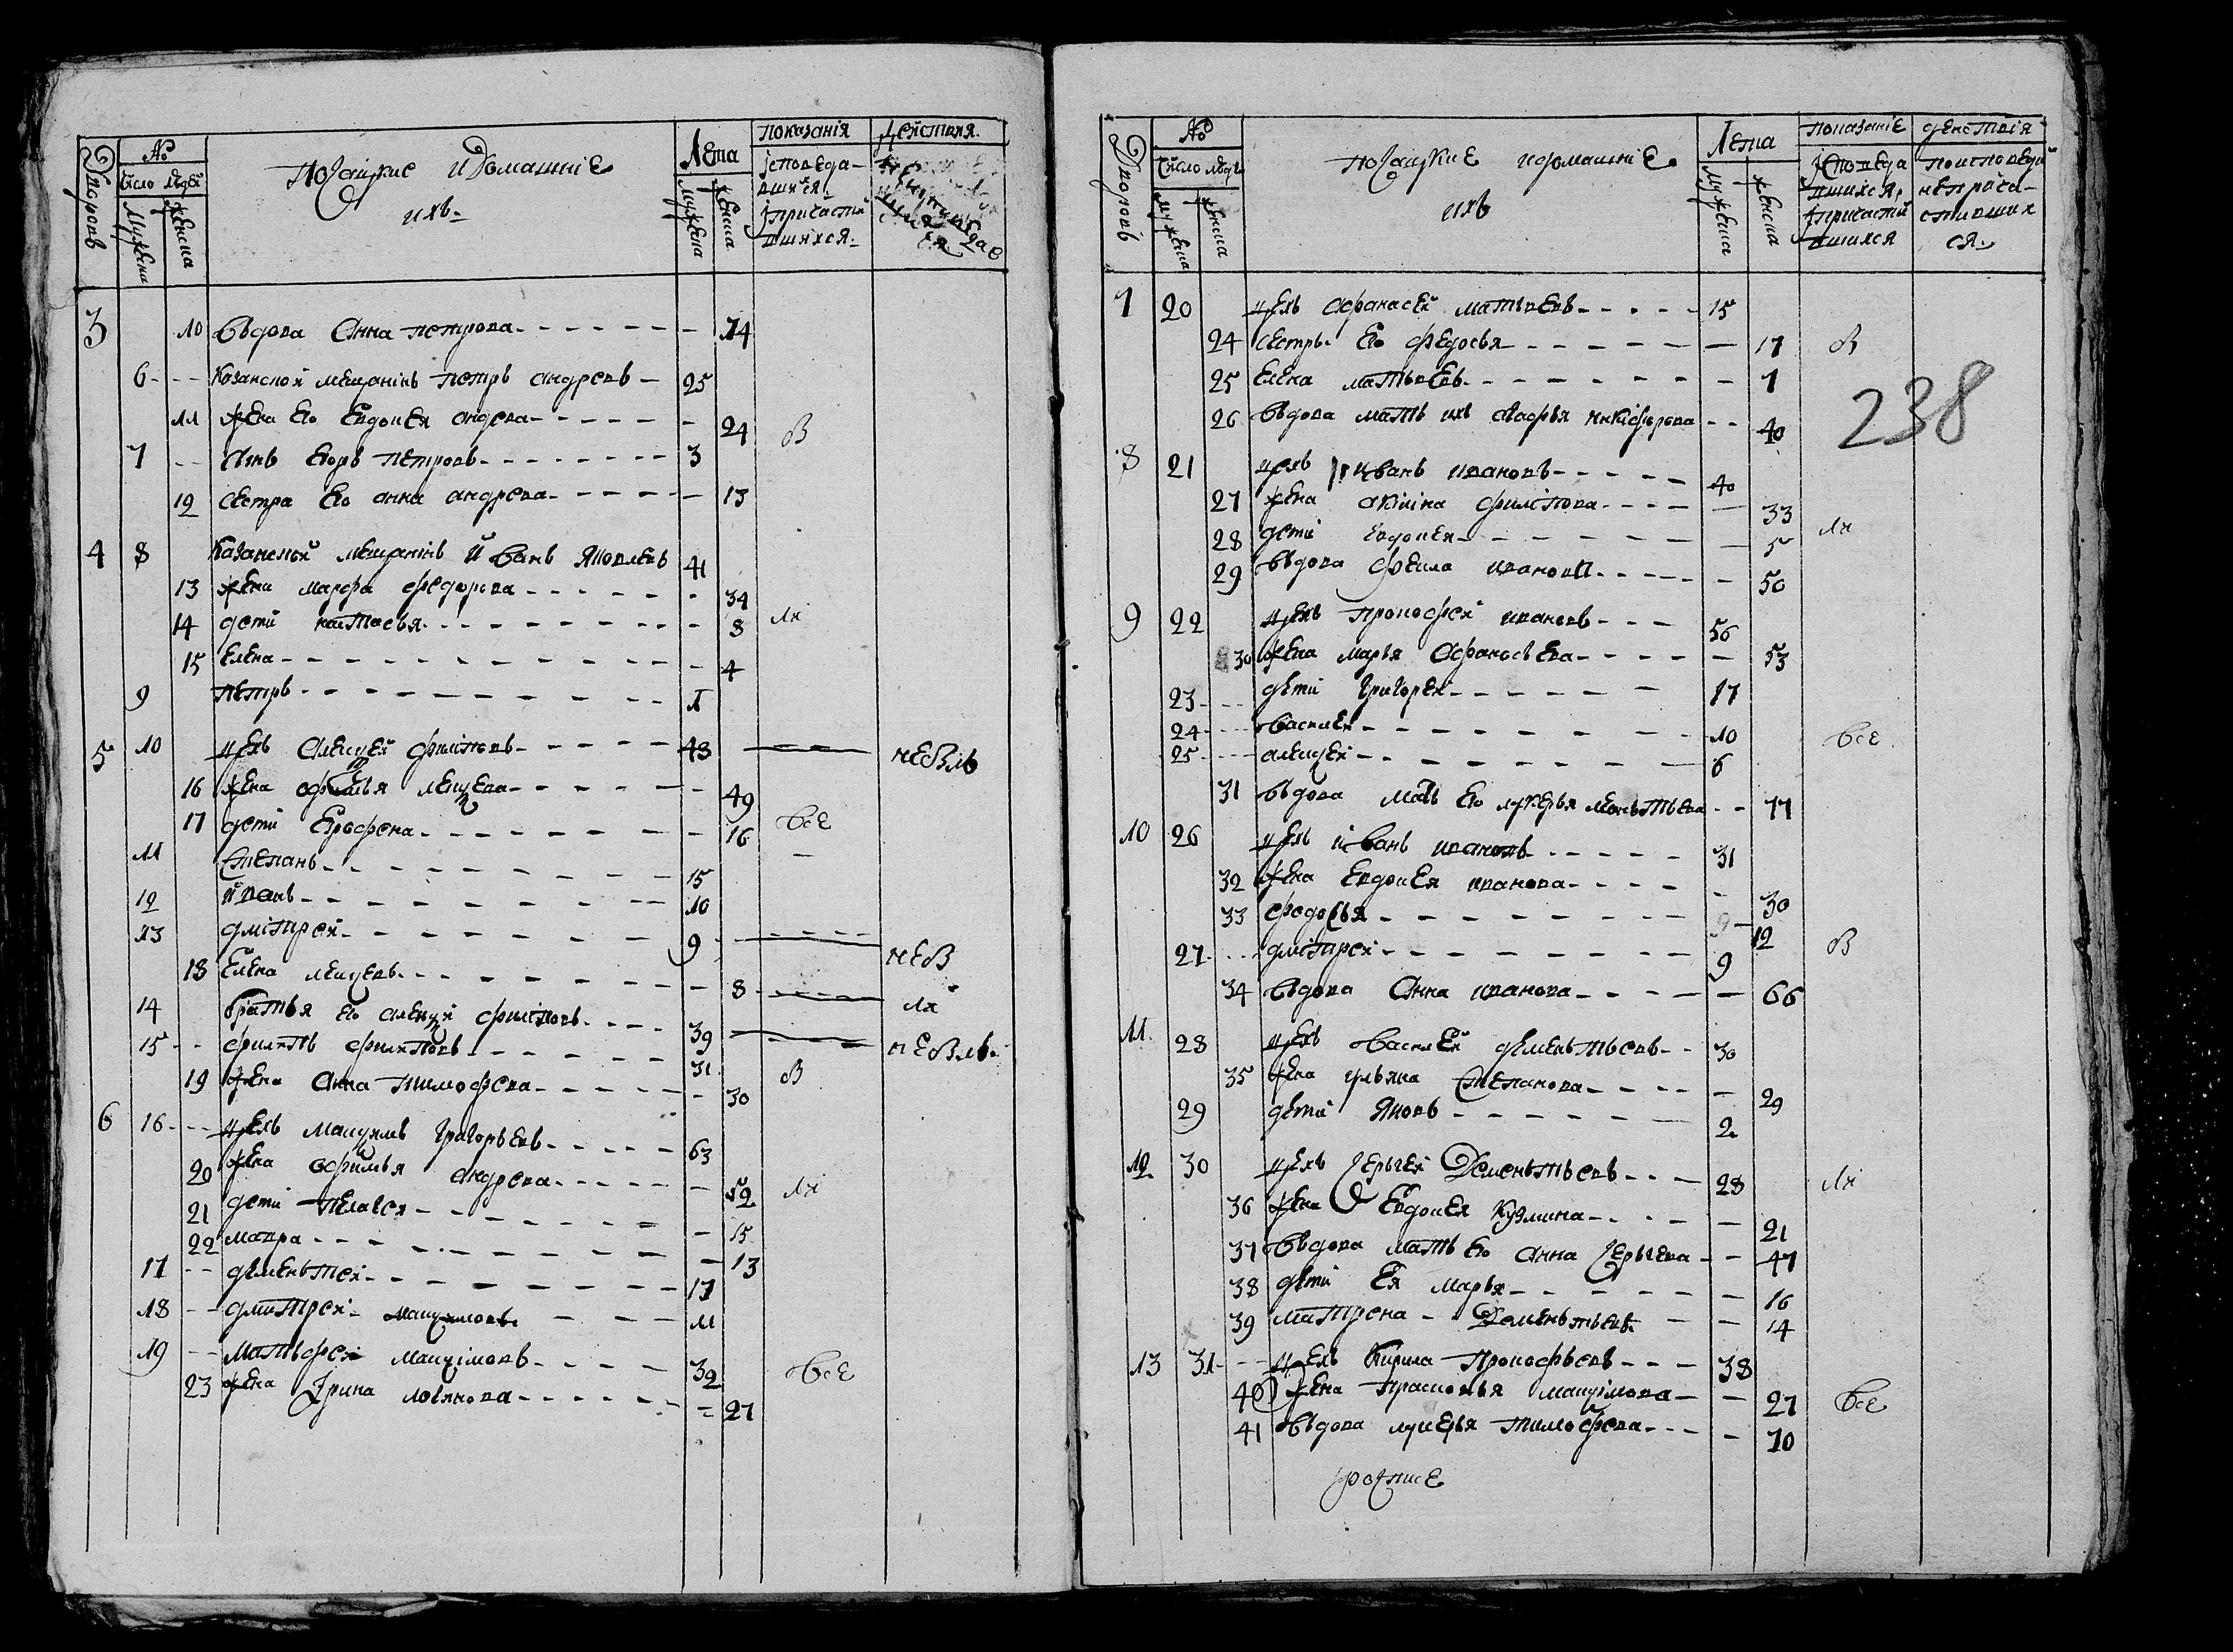 Дворовъ
№
Число людей
Мужеска
женска
Посацкие и Домашние
ихъ
Лета
Мужеска
женска
показанiя
действия
исповеда-
вшихся
i причасти
вшихся
3 10 Вдова Анна петрова - 74
6 Казанской мещанинъ петръ андреевъ 25
11 жена Его Евдокея андрева - 24 В
7 сынъ Егоръ петровъ 3
12 сестра Его анна андрева - 13
4 8 Казанской мещанинъ иванъ Яковлевъ 41
13 жена марфа федорова - 34
14 дети настасья - 8
15 Елена - 4
9 петръ 1
5 10 цехъ Алексей филiповъ 48
16 жена офимья - 49
17 дети - 16 все
11 Степанъ 15
12 иванъ 10
13 дмiтрей 9
18 Елена - 8
14 братья Его алексей филiповъ 39
15 филипъ филиповъ 31
19 жена Анна тимофева - 30 В
6 16 цехъ Максимъ григорьевъ 63
20 жена офимья андрева - 52
21 дети пелагея - 15
22 мавра - 13
17 дементей 17
18 дмитрей максимовъ 11
19 Матьфей максiмовъ 32 все
23 жена Iрина логинова - 27
Дворовъ
№
Число людей
мужеска
женска
посацкие и домашние
ихъ
Лета
мужеска
женска
показанiе
действiя
исповеда
вшихся
i причасти
вшихся
по исповеди
не прича-
стивших
ся
7 20 цехъ афанасей матвеевъ 15
24 сестры Его федосья - 17 В
25 Елена матвеевы - 7
238
26 Вдова мать ихъ никiфорова - 40
8 21 цехъ иванъ ивановъ 40
27 жена акилина филiпова - 33
28 дети Евдокея - 5
29 Вдова фекла иванова - 50
9 22 цехъ прокофей ивановъ 56
30 жена марья Афанасьева - 53
23 дети григорей 17
24 василей 10 все
25 алексей 6
31 Вдова мать Его лукерья - 77
10 26 цехъ иванъ ивановъ 31
32 жена Евдокея иванова - 30
33 федосья - 12
27 дмiтрей 9 В
34 Вдова Анна иванова - 66
11 28 цехъ василей дементьевъ 30
35 жена ульяна Степанова - 29
29 дети Яковъ 2
12 30 цехъ сергей Дементьевъ 28
36 жена Евдокея кузмина - 21
37 Вдова мать Его анна сергеева - 47
38 дети Ея марья - 16
39 матрена Дементьевы - 14
13 31 цехъ Кирила прокофьевъ 38
40 жена прасковья максiмова - 27 все
41 Вдова лукерья тимофева - 70